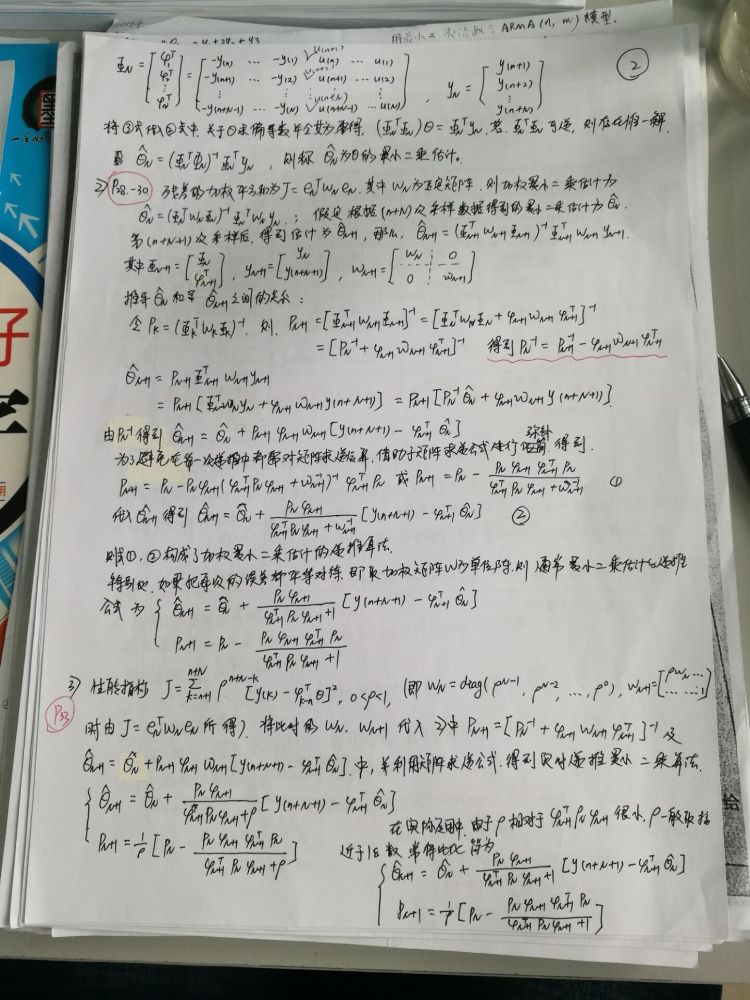 用最小二乘法拟合ARMA(n, m)模型.
②
Φ_N = [φ₁ᵀ φ₂ᵀ ⋮ φ_Nᵀ] = [-y(n) … -y(1) u(n+1) u(n) … u(1); -y(n+1) … -y(2) u(n+2) u(n+1) … u(2); ⋮; -y(n+N-1) … -y(N) u(n+N) … u(N)], y_N = [y(n+1) y(n+2) ⋮ y(n+N)]
将③式代入②式中,关于θ求偏导数并令其为零得,(Φ_NᵀΦ_N)θ = Φ_Nᵀy_N,若Φ_NᵀΦ_N可逆,则存在唯一解
θ̂_N = (Φ_NᵀΦ_N)⁻¹Φ_Nᵀy_N,则称θ̂_N为θ的最小二乘估计。
2) P28-30 残差的加权平方和为J = e_Nᵀw_Ne_N,其中w_N为正定矩阵,则加权最小二乘估计为
θ̂_N = (Φ_Nᵀw_NΦ_N)⁻¹Φ_Nᵀw_Ny_N;假定根据(n+N)次采样数据得到的最小二乘估计为θ̂_N.
第(n+N+1)次采样后,得到估计为θ̂_{N+1},那么,θ̂_{N+1} = (Φ_{N+1}ᵀw_{N+1}Φ_{N+1})⁻¹Φ_{N+1}ᵀw_{N+1}y_{N+1}.
其中Φ_{N+1} = [Φ_N; φ_{N+1}ᵀ], y_{N+1} = [y_N; y(n+N+1)], w_{N+1} = [w_N 0; 0 w_{n+1}]
推导θ̂_N和θ̂_{N+1}之间的关系:
令P_k = (Φ_kᵀw_kΦ_k)⁻¹,则P_{N+1} = [Φ_{N+1}ᵀw_{N+1}Φ_{N+1}]⁻¹ = [Φ_Nᵀw_NΦ_N + φ_{N+1}w_{N+1}φ_{N+1}ᵀ]⁻¹
= [P_N⁻¹ + φ_{N+1}w_{N+1}φ_{N+1}ᵀ]⁻¹ 得到P_N⁻¹ = P_{N+1}⁻¹ - φ_{N+1}w_{N+1}φ_{N+1}ᵀ
θ̂_{N+1} = P_{N+1}Φ_{N+1}ᵀw_{N+1}y_{N+1}
= P_{N+1}[Φ_Nᵀw_Ny_N + φ_{N+1}w_{N+1}y(n+N+1)] = P_{N+1}[P_N⁻¹θ̂_N + φ_{N+1}w_{N+1}y(n+N+1)].
由P_N⁻¹得到θ̂_{N+1} = θ̂_N + P_{N+1}φ_{N+1}w_{N+1}[y(n+N+1) - φ_{N+1}ᵀθ̂_N]
为了避免在每一次递推中都需对矩阵求逆运算,借助于矩阵求逆公式进行得到.
P_{N+1} = P_N - P_Nφ_{N+1}(φ_{N+1}ᵀP_Nφ_{N+1} + w_{N+1}⁻¹)⁻¹φ_{N+1}ᵀP_N 或 P_{N+1} = P_N - P_Nφ_{N+1}φ_{N+1}ᵀP_N / (φ_{N+1}ᵀP_Nφ_{N+1} + w_{N+1}⁻¹) ①
代入θ̂_{N+1}得到θ̂_{N+1} = θ̂_N + P_Nφ_{N+1} / (φ_{N+1}ᵀP_Nφ_{N+1} + w_{N+1}⁻¹) [y(n+N+1) - φ_{N+1}ᵀθ̂_N] ②
则式①,②构成了加权最小二乘估计的递推算法.
特别地,如果把每次的误差都平等对待,即取加权矩阵W为单位阵,则通常最小二乘估计的递推
公式为 { θ̂_{N+1} = θ̂_N + P_Nφ_{N+1} / (φ_{N+1}ᵀP_Nφ_{N+1} + 1) [y(n+N+1) - φ_{N+1}ᵀθ̂_N]
P_{N+1} = P_N - P_Nφ_{N+1}φ_{N+1}ᵀP_N / (φ_{N+1}ᵀP_Nφ_{N+1} + 1)
3) 性能指标 J = Σ_{k=n+1}^{n+N} ρ^{n+N-k}[y(k) - φ_{k-n}ᵀθ]², 0<ρ<1, (即w_N = diag(ρ^{N-1}, ρ^{N-2}, …, ρ⁰), w_{N+1} = [ρw_N … ; … 1]
P33 时由J = e_Nᵀw_Ne_N所得).将此时的w_N, w_{N+1}代入2)中P_{N+1} = [P_N⁻¹ + φ_{N+1}w_{N+1}φ_{N+1}ᵀ]⁻¹及
θ̂_{N+1} = θ̂_N + P_{N+1}φ_{N+1}w_{N+1}[y(n+N+1) - φ_{N+1}ᵀθ̂_N]中,并利用矩阵求逆公式,得到实时递推最小二乘算法.
{ θ̂_{N+1} = θ̂_N + P_Nφ_{N+1} / (φ_{N+1}ᵀP_Nφ_{N+1} + ρ) [y(n+N+1) - φ_{N+1}ᵀθ̂_N]
P_{N+1} = 1/ρ [P_N - P_Nφ_{N+1}φ_{N+1}ᵀP_N / (φ_{N+1}ᵀP_Nφ_{N+1} + ρ)]
在实际运用中,由于ρ相对于φ_{N+1}ᵀP_Nφ_{N+1}很小,ρ一般取接
近于1的数,常将此化简为
{ θ̂_{N+1} = θ̂_N + P_Nφ_{N+1} / (φ_{N+1}ᵀP_Nφ_{N+1} + 1) [y(n+N+1) - φ_{N+1}ᵀθ̂_N]
P_{N+1} = 1/ρ [P_N - P_Nφ_{N+1}φ_{N+1}ᵀP_N / (φ_{N+1}ᵀP_Nφ_{N+1} + 1)]
墨
好
给